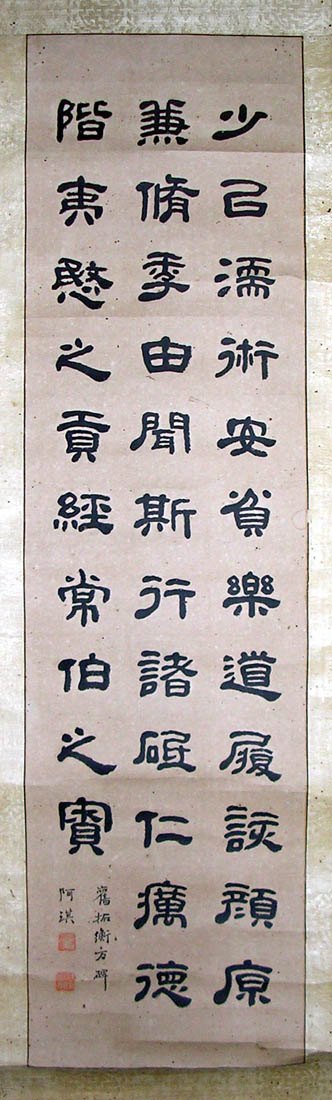 少㠯濡術安貧樂道履該顔原
兼脩季由聞斯行諸砥仁癘德
階夷愍之貢經常伯之賓
舊拓衡方碑
阿瑛